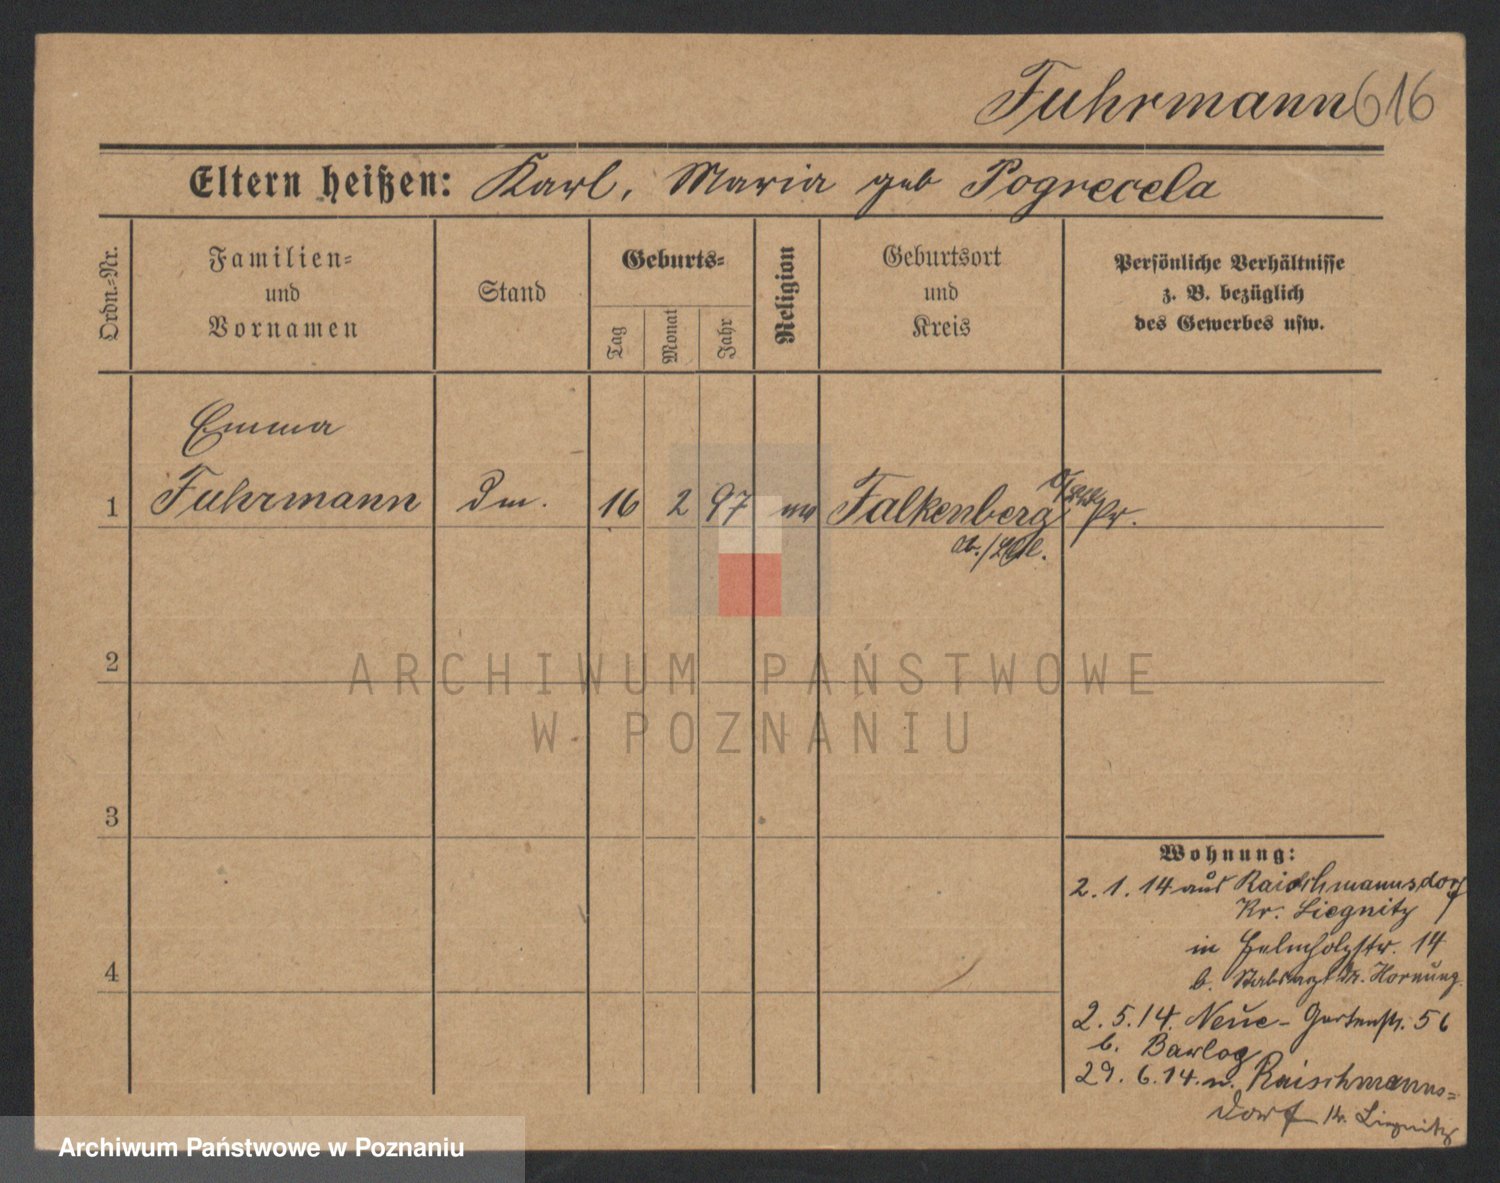 Fuhrmann 616
Eltern heißen: Karl, Maria geb Pogrecela
Ordn.-Nr.
Familien-
und
Vornamen
Stand
Geburts-
Tag
Monat
Jahr
Religion
Geburtsort
und
Kreis
Persönliche Verhältnisse
z. B. bezüglich
des Gewerbes usw.
Emma
1 Fuhrmann Dm. 16 2 97 Falkenberg Pr.
2
3
4
ARCHIWUM PAŃSTWOWE
W POZNANIU
Wohnung:
2. 1. 14 aus Raischmannsdorf
Kr. Liegnitz
in Helmholzstr. 14
b. Stabsarzt Dr. Hornung
2. 5. 14. Neue-Gartenstr. 56
b. Barlog
29. 6. 14. n. Raischmanns-
dorf Kr. Liegnitz
Archiwum Państwowe w Poznaniu